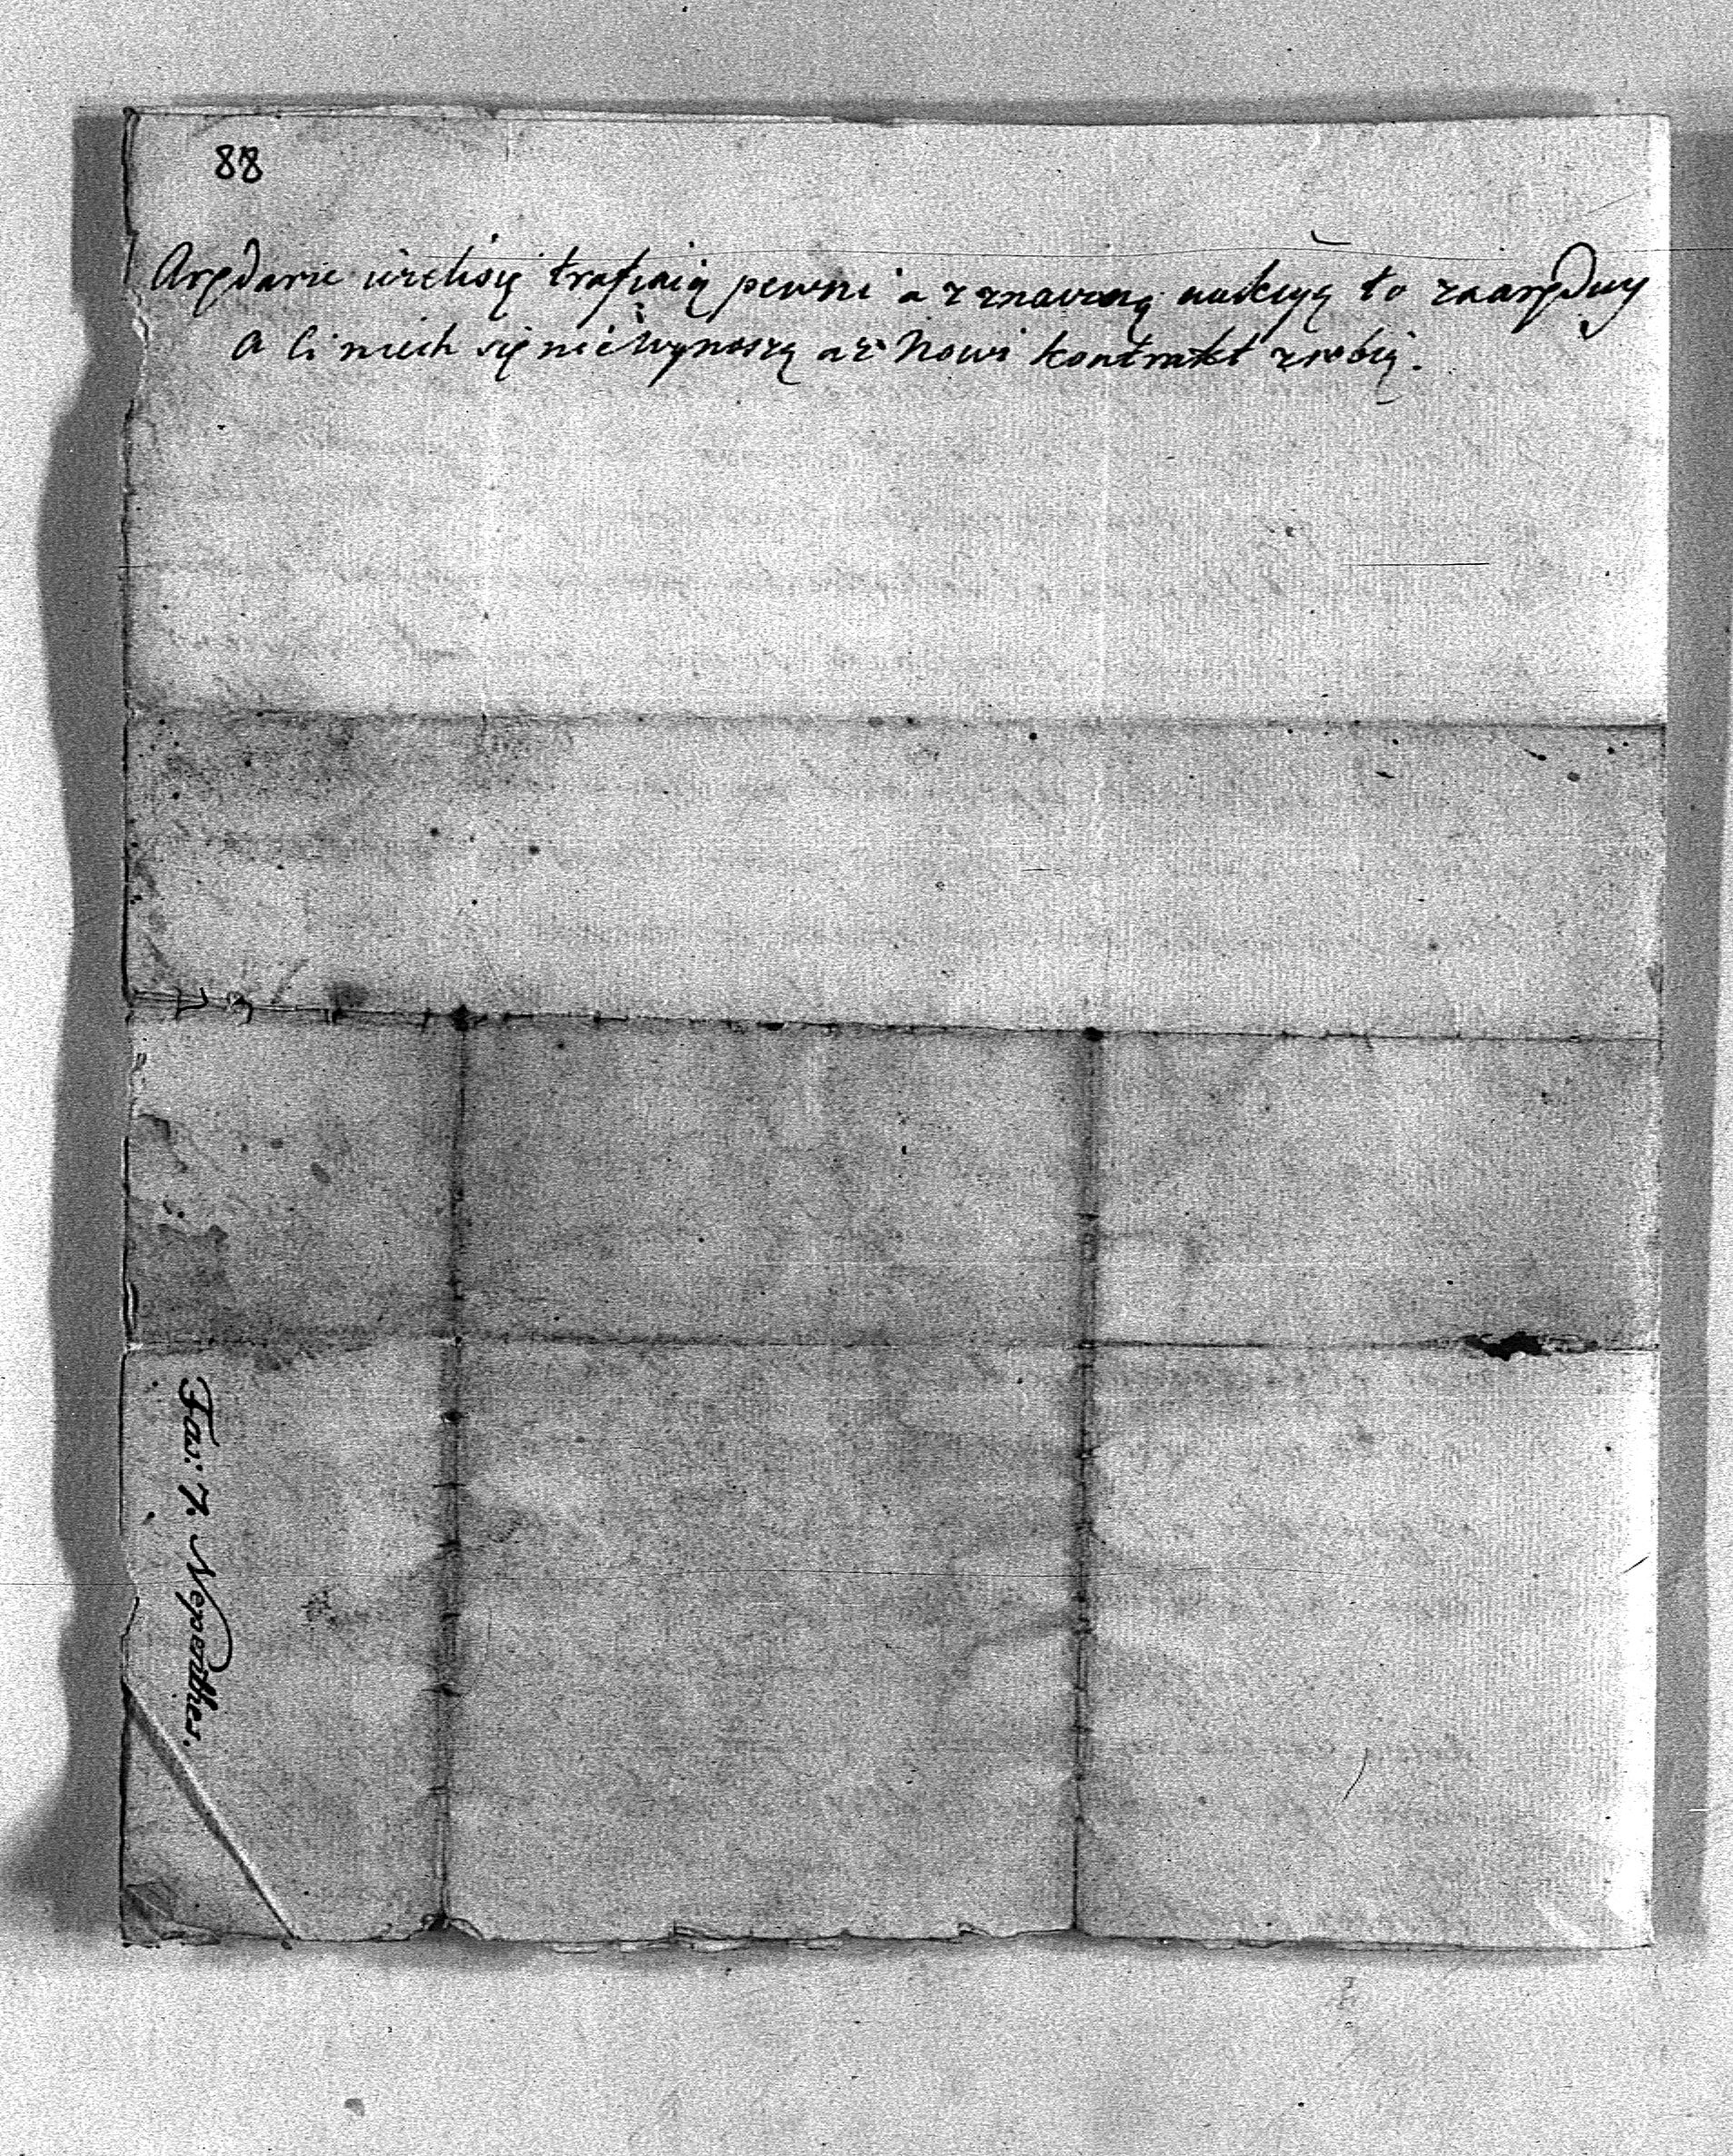 88
Arędarze ieżelisię trafiaią pewni a z znaczną aukcyą to zaaręduy
A Ci niech się niewynoszą aż Nowi kontrakt zrobią.
Fasc: 7. Nepenthes.